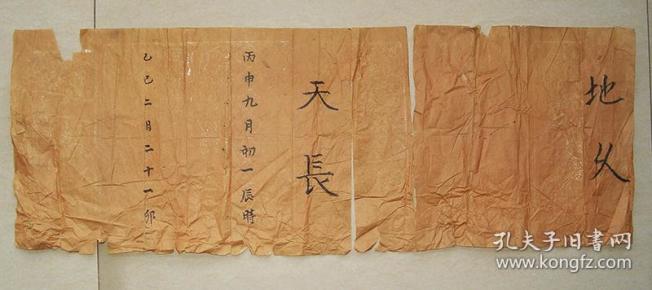 地久
天長
丙申九月初一辰時
乙巳二月二十一卯
孔夫子旧書网
www.kongfz.com